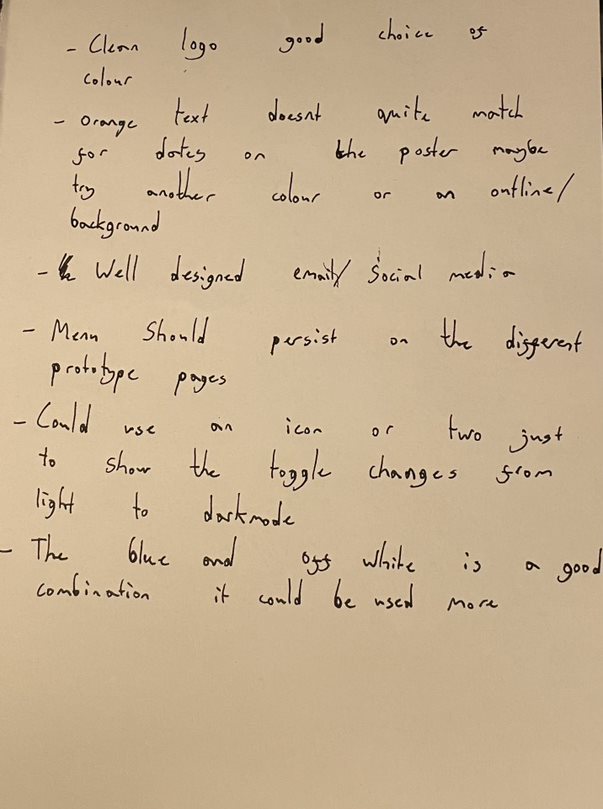 - Clean logo good choice of
colour
- orange text doesnt quite match
for dates on the poster maybe
try another colour or an outline/
background
- Well designed email/ Social media
- Menu Should persist on the different
prototype pages
- Could use an icon or two just
to show the toggle changes from
light to darkmode
- The blue and off white is a good
combination it could be used more